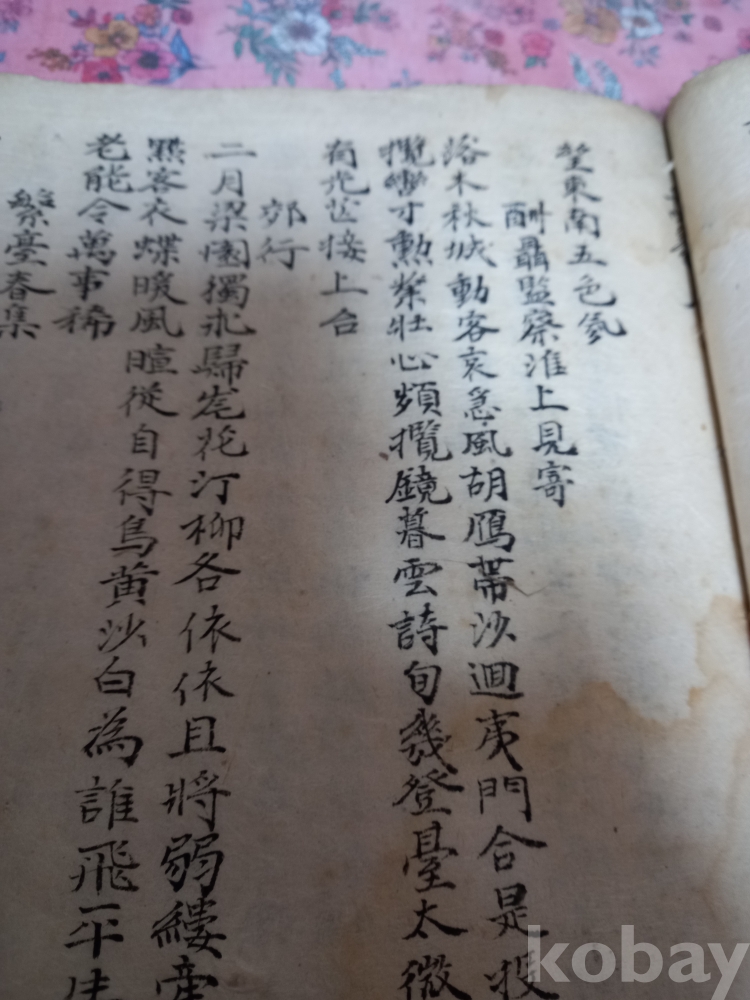 望東南五色氛
酬聶監察淮上見寄
落木秋城動客哀急風胡鴈帶沙迴夷門合是投
攬轡才勲業壯心頻攬鏡暮雲詩句幾登臺太微
有光芒接上台
郊行
二月梁園獨未歸岸花汀柳各依依且將弱縷牽
客衣蝶暖風暄從自得烏黃沙白為誰飛平生
老能令萬事稀
繁臺春集
kobay